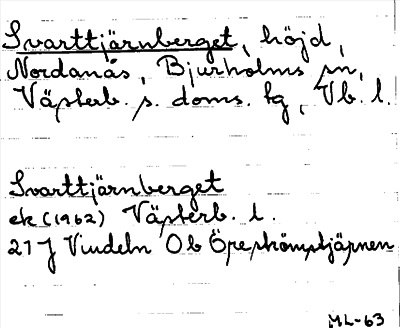 Svarttjärnberget, höjd,
Nordanås, Bjurholms sn,
Västerb. s. doms. tg, Vb. l.
Svarttjärnberget
ek (1962) Västerb. l.
21 J Vindeln 0b Öreströmstjärnen
ML-63